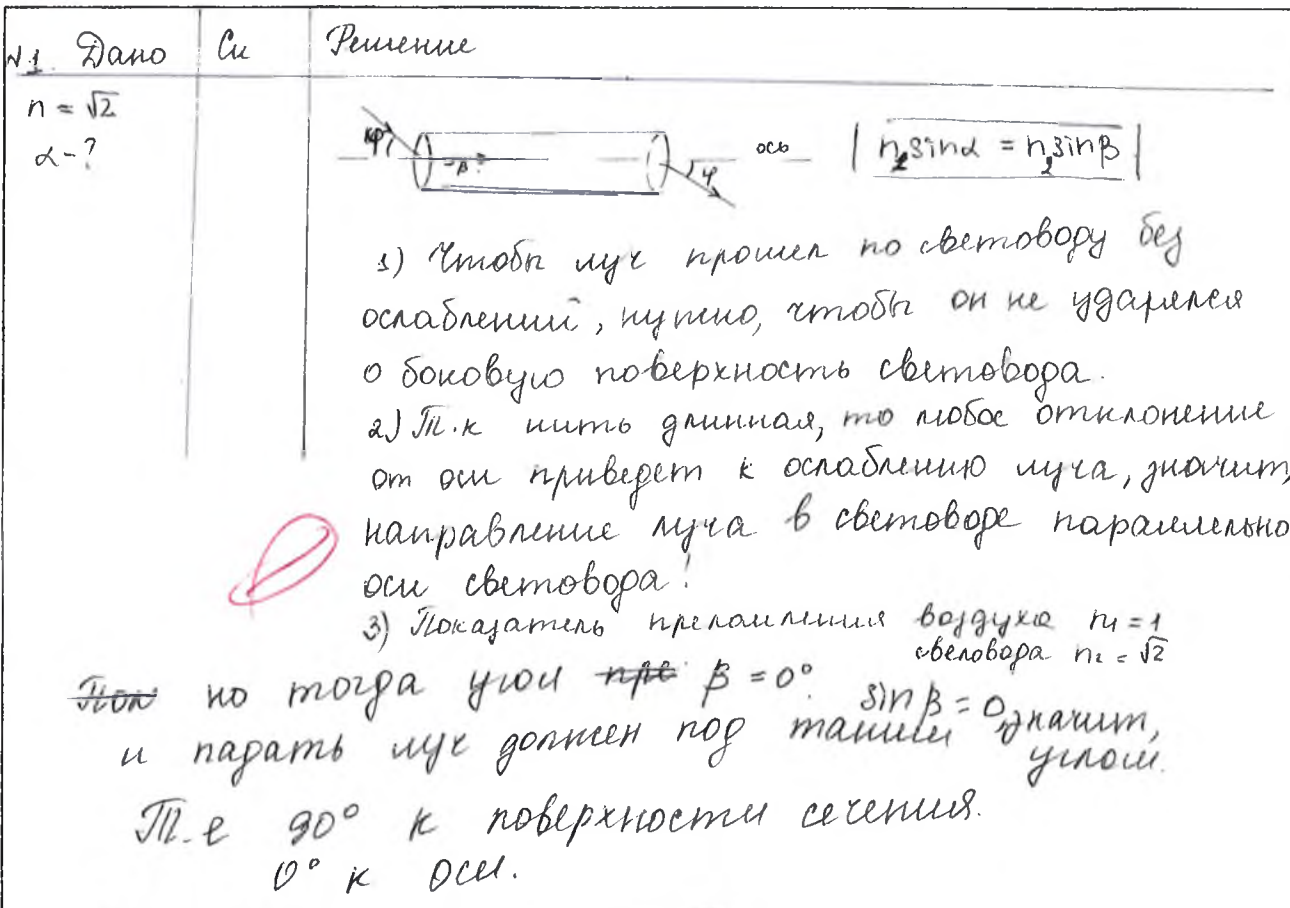 №1. Дано Си Решение
n = √2
α - ?
φ β φ ось n₁sinα = n₂sinβ
1) Чтобы луч прошел по световоду без
ослаблений, нужно, чтобы он не ударялся
о боковую поверхность световода.
2) Т.к нить длинная, то любое отклонение
от оси приведет к ослаблению луча, значит,
направление луча в световоде параллельно
оси световода!
3) Показатель преломления воздуха n₁ = 1
световода n₂ = √2
но тогда угол β = 0°. sinβ = 0, значит,
и падать луч должен под таким углом.
Т.е 90° к поверхности сечения.
0° к оси.